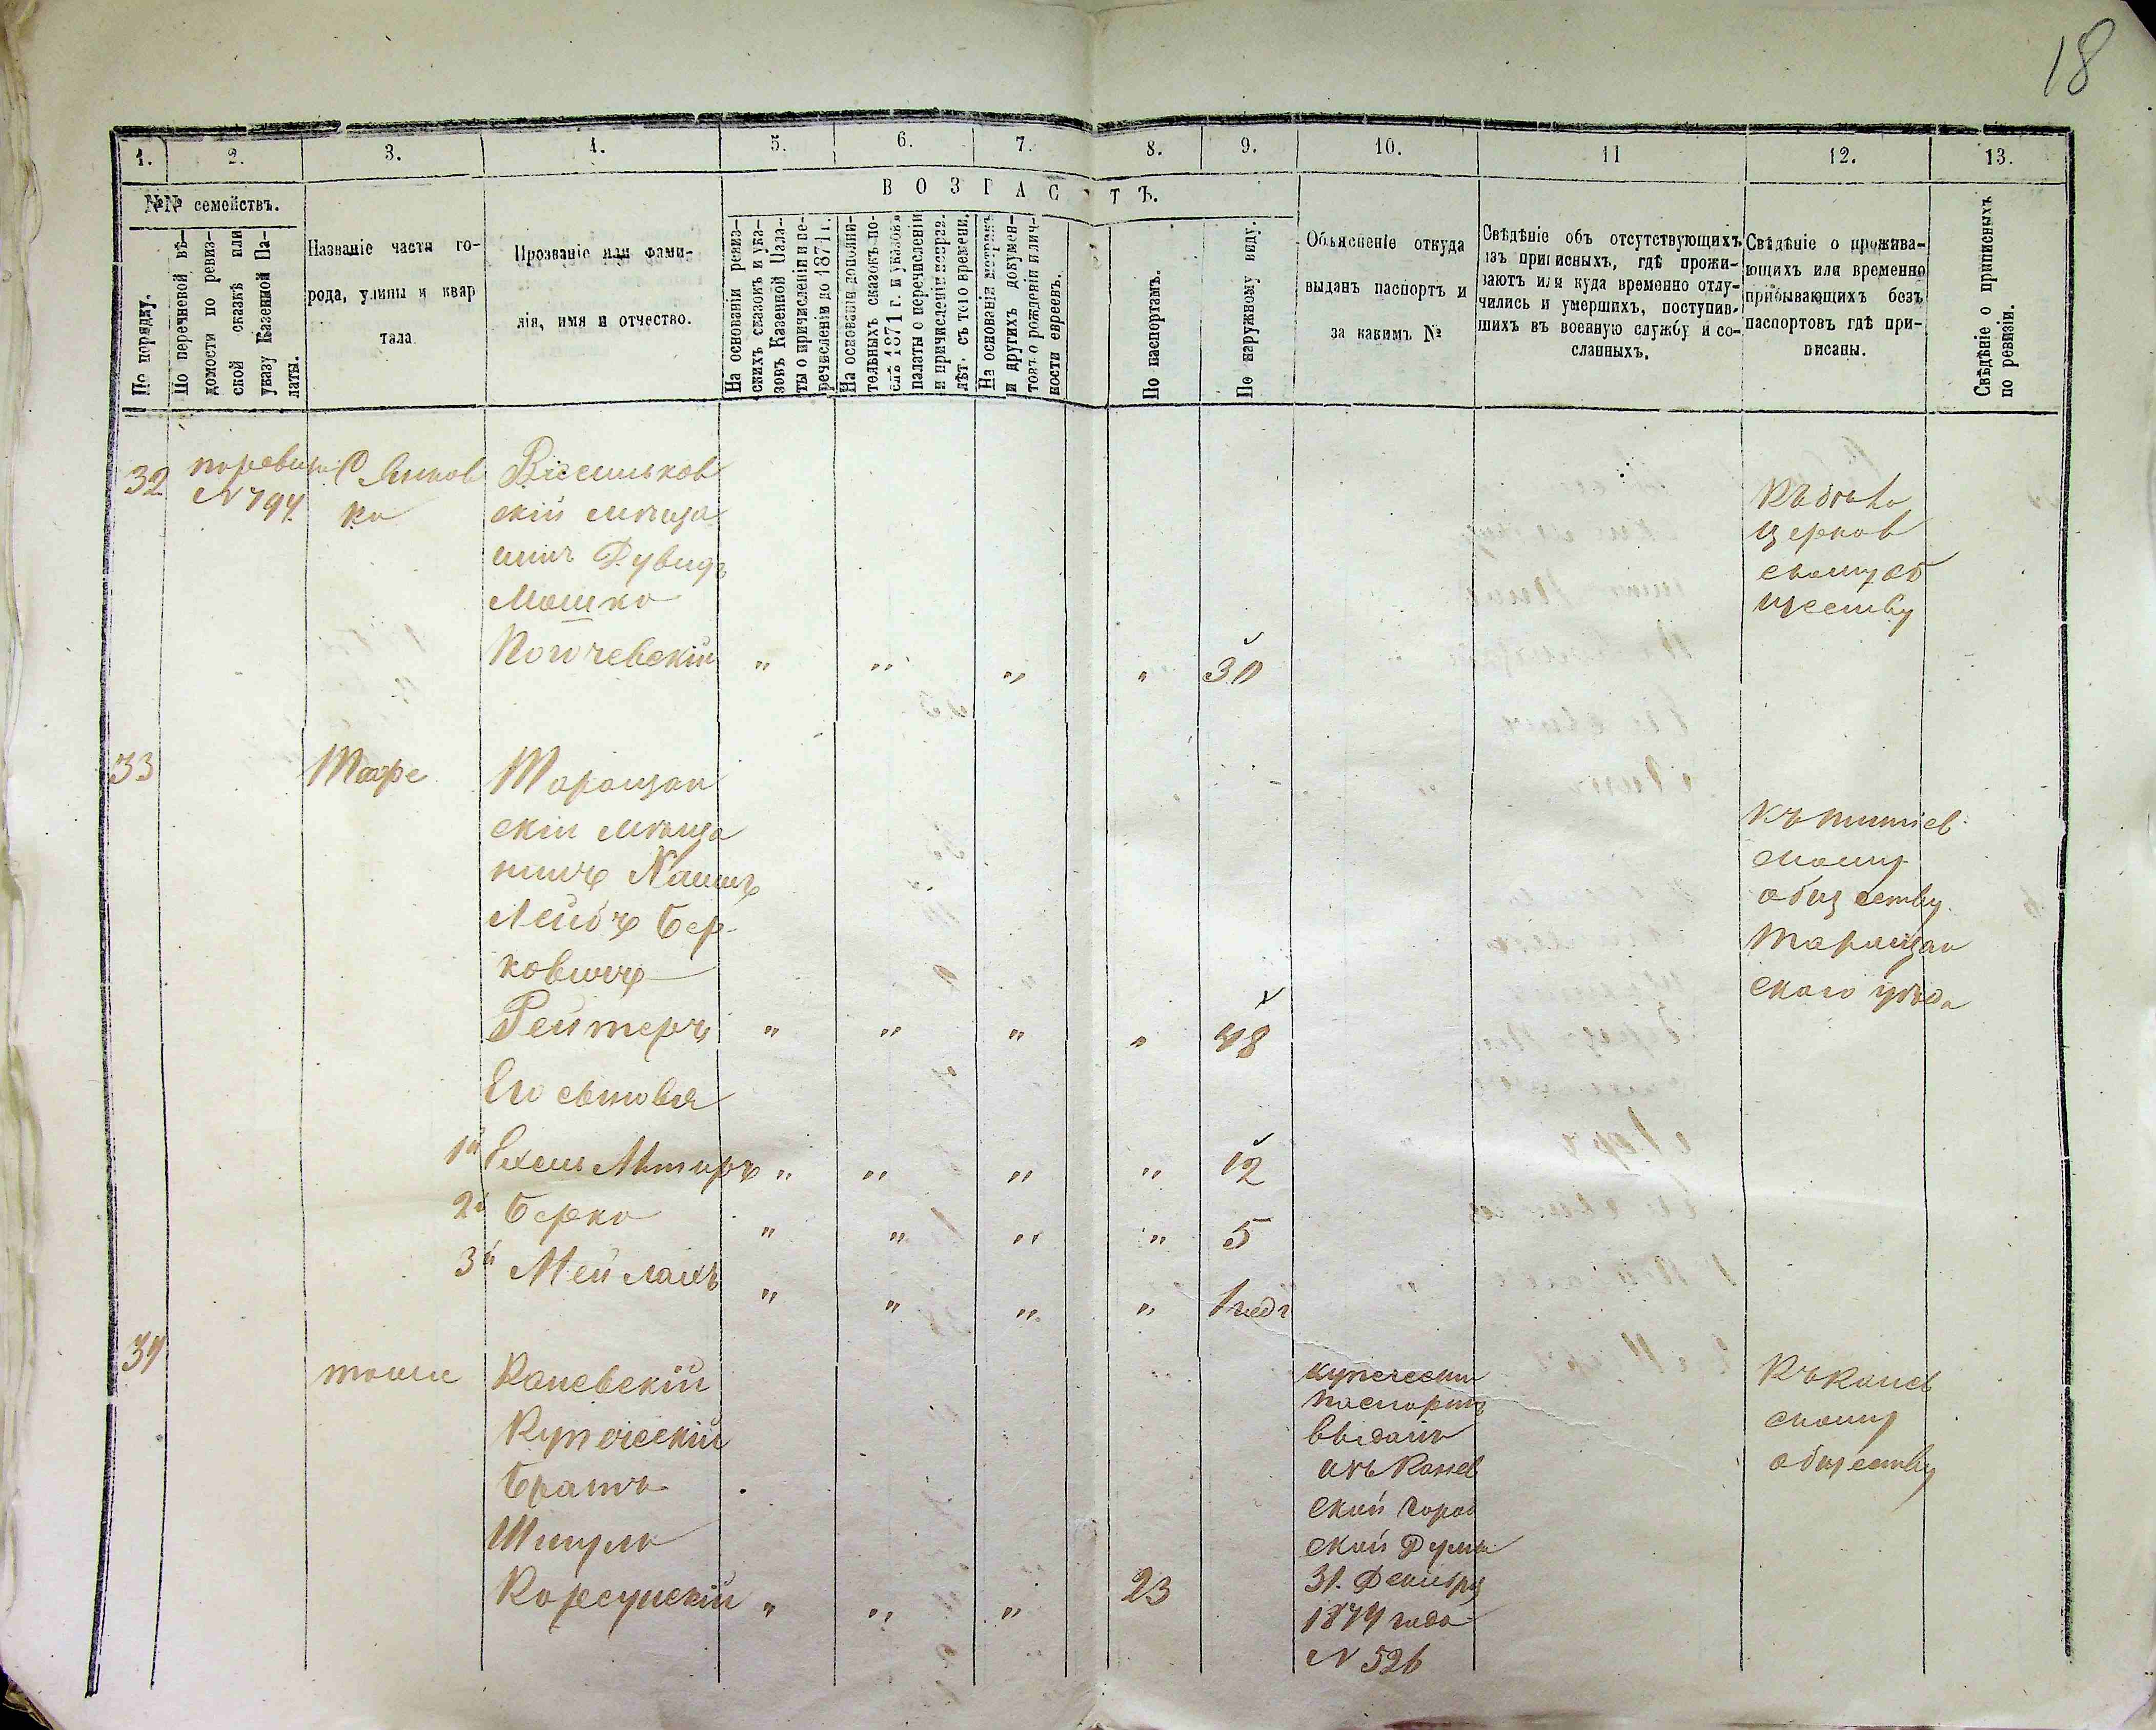 18
1. 2. 3. 4. 5. 6. 7. 8. 9. 10. 11 12. 13.
№№ семействъ.
По порядку.
По перечневой вѣ-
домости по ревиз-
ской сказкѣ или
указу Казенной Па-
латы.
Названіе части го-
рода, улицы и квар
тала
Прозваніе или фами-
лія, имя и отчество.
ВОЗРАСТЪ.
На основаніи ревиз-
скихъ сказокъ и ука-
зовъ Казенной Пала-
ты о причисленіи и пе-
речисленіи до 1871 г.
На основаніи дополни-
тельныхъ сказокъ по-
слѣ 1871 г. и указовъ
палаты о перечисленіи
и причисленіи
лѣт. съ того времени.
На основаніи метрикъ
и другихъ докумен-
товъ о рожденіи и лич-
ности евреевъ.
По паспортамъ.
По наружному виду.
Объясненіе откуда
выданъ паспортъ и
за какимъ №
Свѣдѣніе объ отсутствующихъ
изъ приписныхъ, гдѣ прожи-
ваютъ или куда временно отлу-
чились и умершихъ, поступив-
шихъ въ военную службу и со-
сланныхъ.
Свѣдѣніе о прожива-
ющихъ или временно
прибывающихъ безъ
паспортовъ гдѣ при-
писаны.
Свѣдѣніе о приписныхъ
по ревизіи.
32
N 794
С. Янков
ка
скій мѣща
нинъ Дувидъ
Мошко
" " " " 30
Къ бѣло
церков
скому об
ществу
33
Тоже
Таращан
скій мѣща
нинъ Хаимъ
Лейбъ Бер-
ковичъ
Рейтеръ " " " " 48
Къ
скому
обществу
Таращан
скаго уѣзда
Его сыновья
1й " " " " 12
2й Берко " " " " 5
3й Мейлахъ " " " " 1 нед
34
тоже
Каневскій
Купеческій
братъ
Шмуль
Корсунскій " " " 23
купечески
паспортъ
выданъ
изъ Канев
ской город
ской Думы
31. Декабря
1874 года
N 526
Къ Канев
скому
обществу